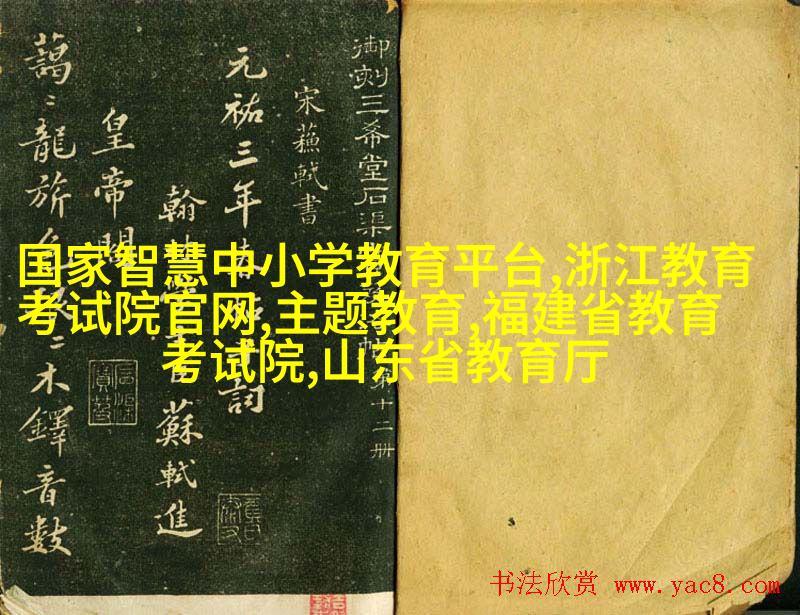 御刻三希堂石渠帖第十二册
宋蘓軾書
元祐三年春帖子詞
翰林學士臣蘇軾進
皇帝閤
藹〻龍旂色〻木鐸音數
国家智慧中小学教育平台,浙江教育
考试院官网,主题教育,福建省教育
考试院,山东省教育厅
书法欣赏 www.yac8.com